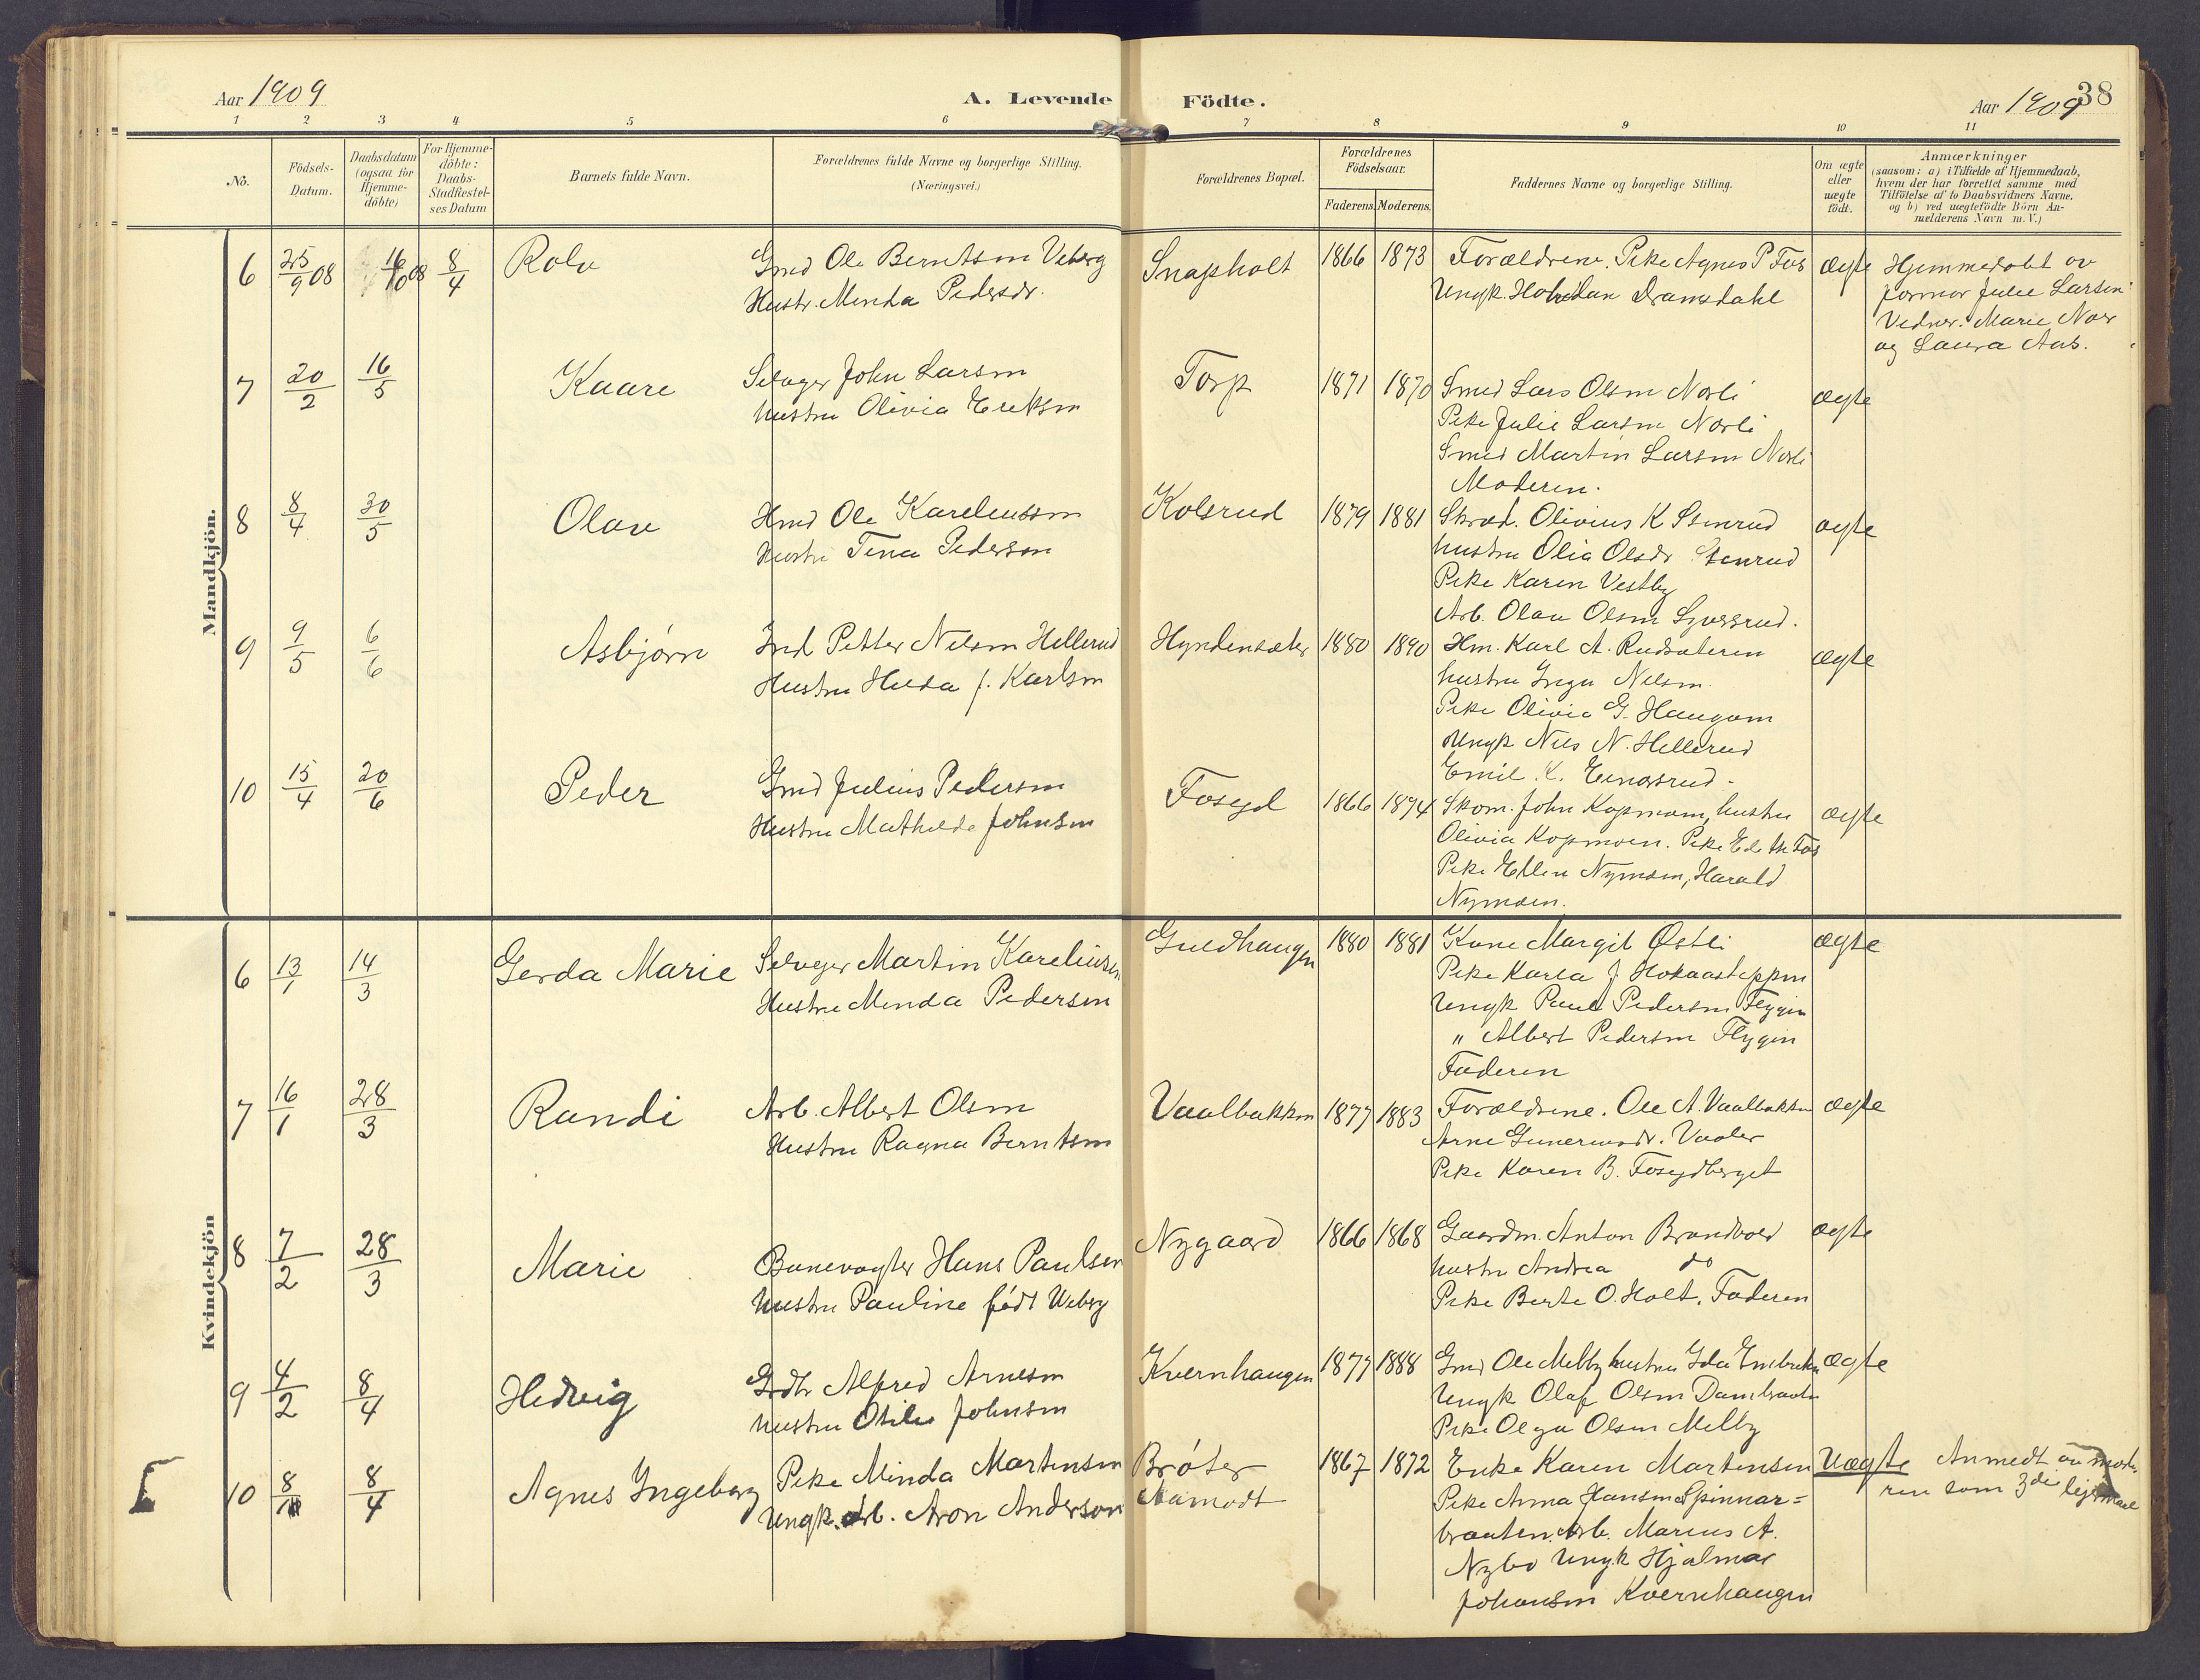 Aar 1909
A. Levende Födte.
Aar 1909
38
1 2 3 4 5 6 7 8 9 10 11
No.
Födsels-Datum.
Daabsdatum (ogsaa for Hjemme-döbte)
For Hjemme-döbte: Daabs-Stadfæstel-ses Datum
Barnets fulde Navn.
Forældrenes fulde Navne og borgerlige Stilling. (Næringsvei.)
Forældrenes Bopæl.
Forældrenes Födselsaar.
Faderens. Moderens.
Faddernes Navne og borgerlige Stilling.
Om ægte eller uægte födt.
Anmærkninger
(saasom: a) i Tilfælde af Hjemmedaab,
hvem der har forrettet samme med
Tilföielse af to Daabsvidners Navne,
og b) ved uægtefödte Börn An-
melderens Navn m. V.)
Mandkjön.
6 25/9 08 16/10 08 8/4 Rolv Gmd Ole Berntsen Veberg Snapholt 1866 1873 Forældrene. Pike Agnes P Fos ægte Hjemmedøbt av
Hustr. Minda Pedersdr. Ungk. Halvdan Dramsdahl farmor Julie Larsen
Vidner: Marie Noer
og Laura Aas.
7 20/2 16/5 Kaare Selveger John Larsen Torp 1871 1870 Smed Lars Olsen Norli ægte
hustru Olivia Eriksen Pike Julie Larsen Norli
Smed Martin Larsen Norli
Moderen.
8 8/4 30/5 Olav Hmd Ole Kareliussen Kolsrud 1879 1881 Skræd. Olivius K Stenrud ægte
Hustru Tina Pedersen hustru Olia Olsdr Stenrud
Pike Karen Vestby
Arb. Olav Olsen
9 9/5 6/6 Asbjørn Ind Petter Nilsen Hellerud Hyndensæter 1880 1890 Hm. Karl A. Rudsæteren ægte
Hustru Hilda f. Karlsen hustru Inga Nilsen
Pike Olivia G. Haugom
Ungk Nils N. Hellerud
Emil K.
10 15/4 20/6 Peder Gmd Julius Pedersen Foseyd 1866 1874 Skom. John Kopmoen, hustru ægte
Hustru Mathilde Johnsen Olivia Kopmoen. Pike Edithe Fos
Pike Ellen Nymoen, Harald
Nymoen.
Kvindekjön
6 13/1 14/3 Gerda Marie Selveger Martin Kareliussen Guldhaugen 1880 1881 Kone Margit Østli ægte
Hustru Minda Pedersen Pike Karla J. Hokaasteppen
Ungk Paul Pedersen Flygin
" Albert Pedersen Flygin
Faderen
7 16/1 28/3 Randi Arb. Albert Olsen Vaalbakken 1877 1883 Forældrene. Ole A. Vaalbakken ægte
Hustru Ragna Berntsen Arne Vaaler
Pike Karen B. Foseydberget
8 7/2 28/3 Marie Banevogter Hans Paulsen Nygaard 1866 1868 Gaardm. Anton Brandvold ægte
hustru Pauline født Weberg hustru Andrea do
Pike Berte O. Holt. Faderen
9 4/2 8/4 Hedvig Grdbr Alfred Arnesen Kvernhaugen 1877 1888 Gmd Ole Melby hustru Ida Embretsen ægte
hustru Otilie Johnsen Ungk Olaf Olsen Dambraaten
Pike Olga Olsen Melby
10 8/11 8/4 Agnes Ingeborg Pike Minda Martinsen Brøter 1867 1872 Enke Karen Martinsen uægte Anmedt av mode-
Ungk. Arb. Aron Anderson Aamodt Pike Anna Hansen Spinnar= ren som 3die lejermaal
braaten. Arb. Marius A.
Nybo Ungk Hjalmar
Johansen Kvernhaugen